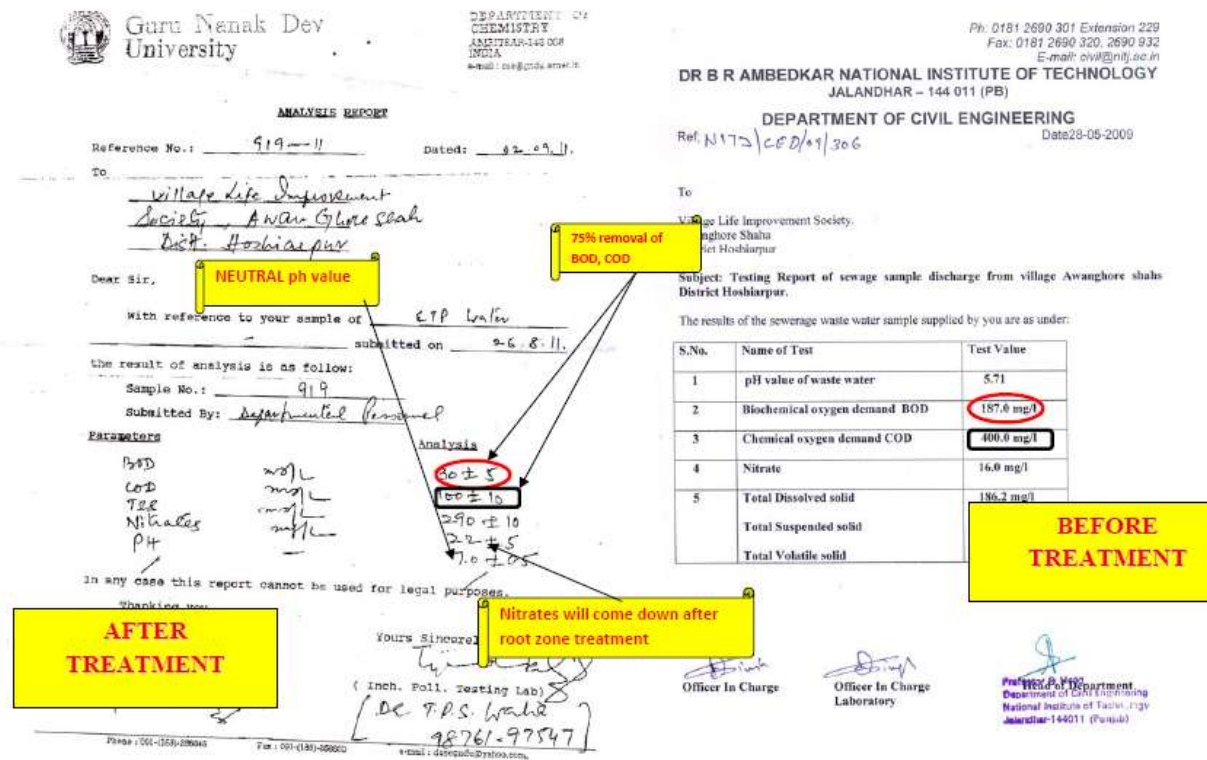 Guru Nanak Dev
University
DEPARTMENT OF
CHEMISTRY
AMRITSAR-143 005
INDIA
ANALYSIS REPORT
Reference No.: 919-11 Dated: 02.09.11.
To
Village Life Improvement
Society, Awan Ghore Shah
Distt. Hoshiarpur
NEUTRAL ph value
75% removal of
BOD, COD
Dear Sir,
With reference to your sample of ETP Water
submitted on 26.8.11.
the result of analysis is as follow:
Sample No.: 919
Submitted By: Departmental Personnel
Parameters Analysis
BOD mg/L 30 ± 5
COD mg/L 100 ± 10
mg/L 290 ± 10
Nitrates mg/L 22 ± 5
PH — 7.0 ± 05
In any case this report cannot be used for legal purposes.
Thanking you
AFTER
TREATMENT
Nitrates will come down after
root zone treatment
Yours Sincerel
( Inch. Poll. Testing Lab)
98761-97547
Ph: 0181 2690 301 Extension 229
Fax: 0181 2690 320, 2690 932
E-mail: civil@nitj.ac.in
DR B R AMBEDKAR NATIONAL INSTITUTE OF TECHNOLOGY
JALANDHAR – 144 011 (PB)
DEPARTMENT OF CIVIL ENGINEERING
Ref: NITJ/CED/09/306 Date28-05-2009
To
Village Life Improvement Society.
nghore Shaha
rict Hoshiarpur
Subject: Testing Report of sewage sample discharge from village Awanghore shahs
District Hoshiarpur.
The results of the sewerage waste water sample supplied by you are as under:
S.No. Name of Test Test Value
1 pH value of waste water 5.71
2 Biochemical oxygen demand BOD 187.0 mg/l
3 Chemical oxygen demand COD 400.0 mg/l
4 Nitrate 16.0 mg/l
5 Total Dissolved solid 186.2 mg/l
Total Suspended solid
Total Volatile solid
BEFORE
TREATMENT
Officer In Charge
Officer In Charge
Laboratory
Head of Department
Department of Civil Engineering
National Institute of
Jalandhar-144011 (Punjab)